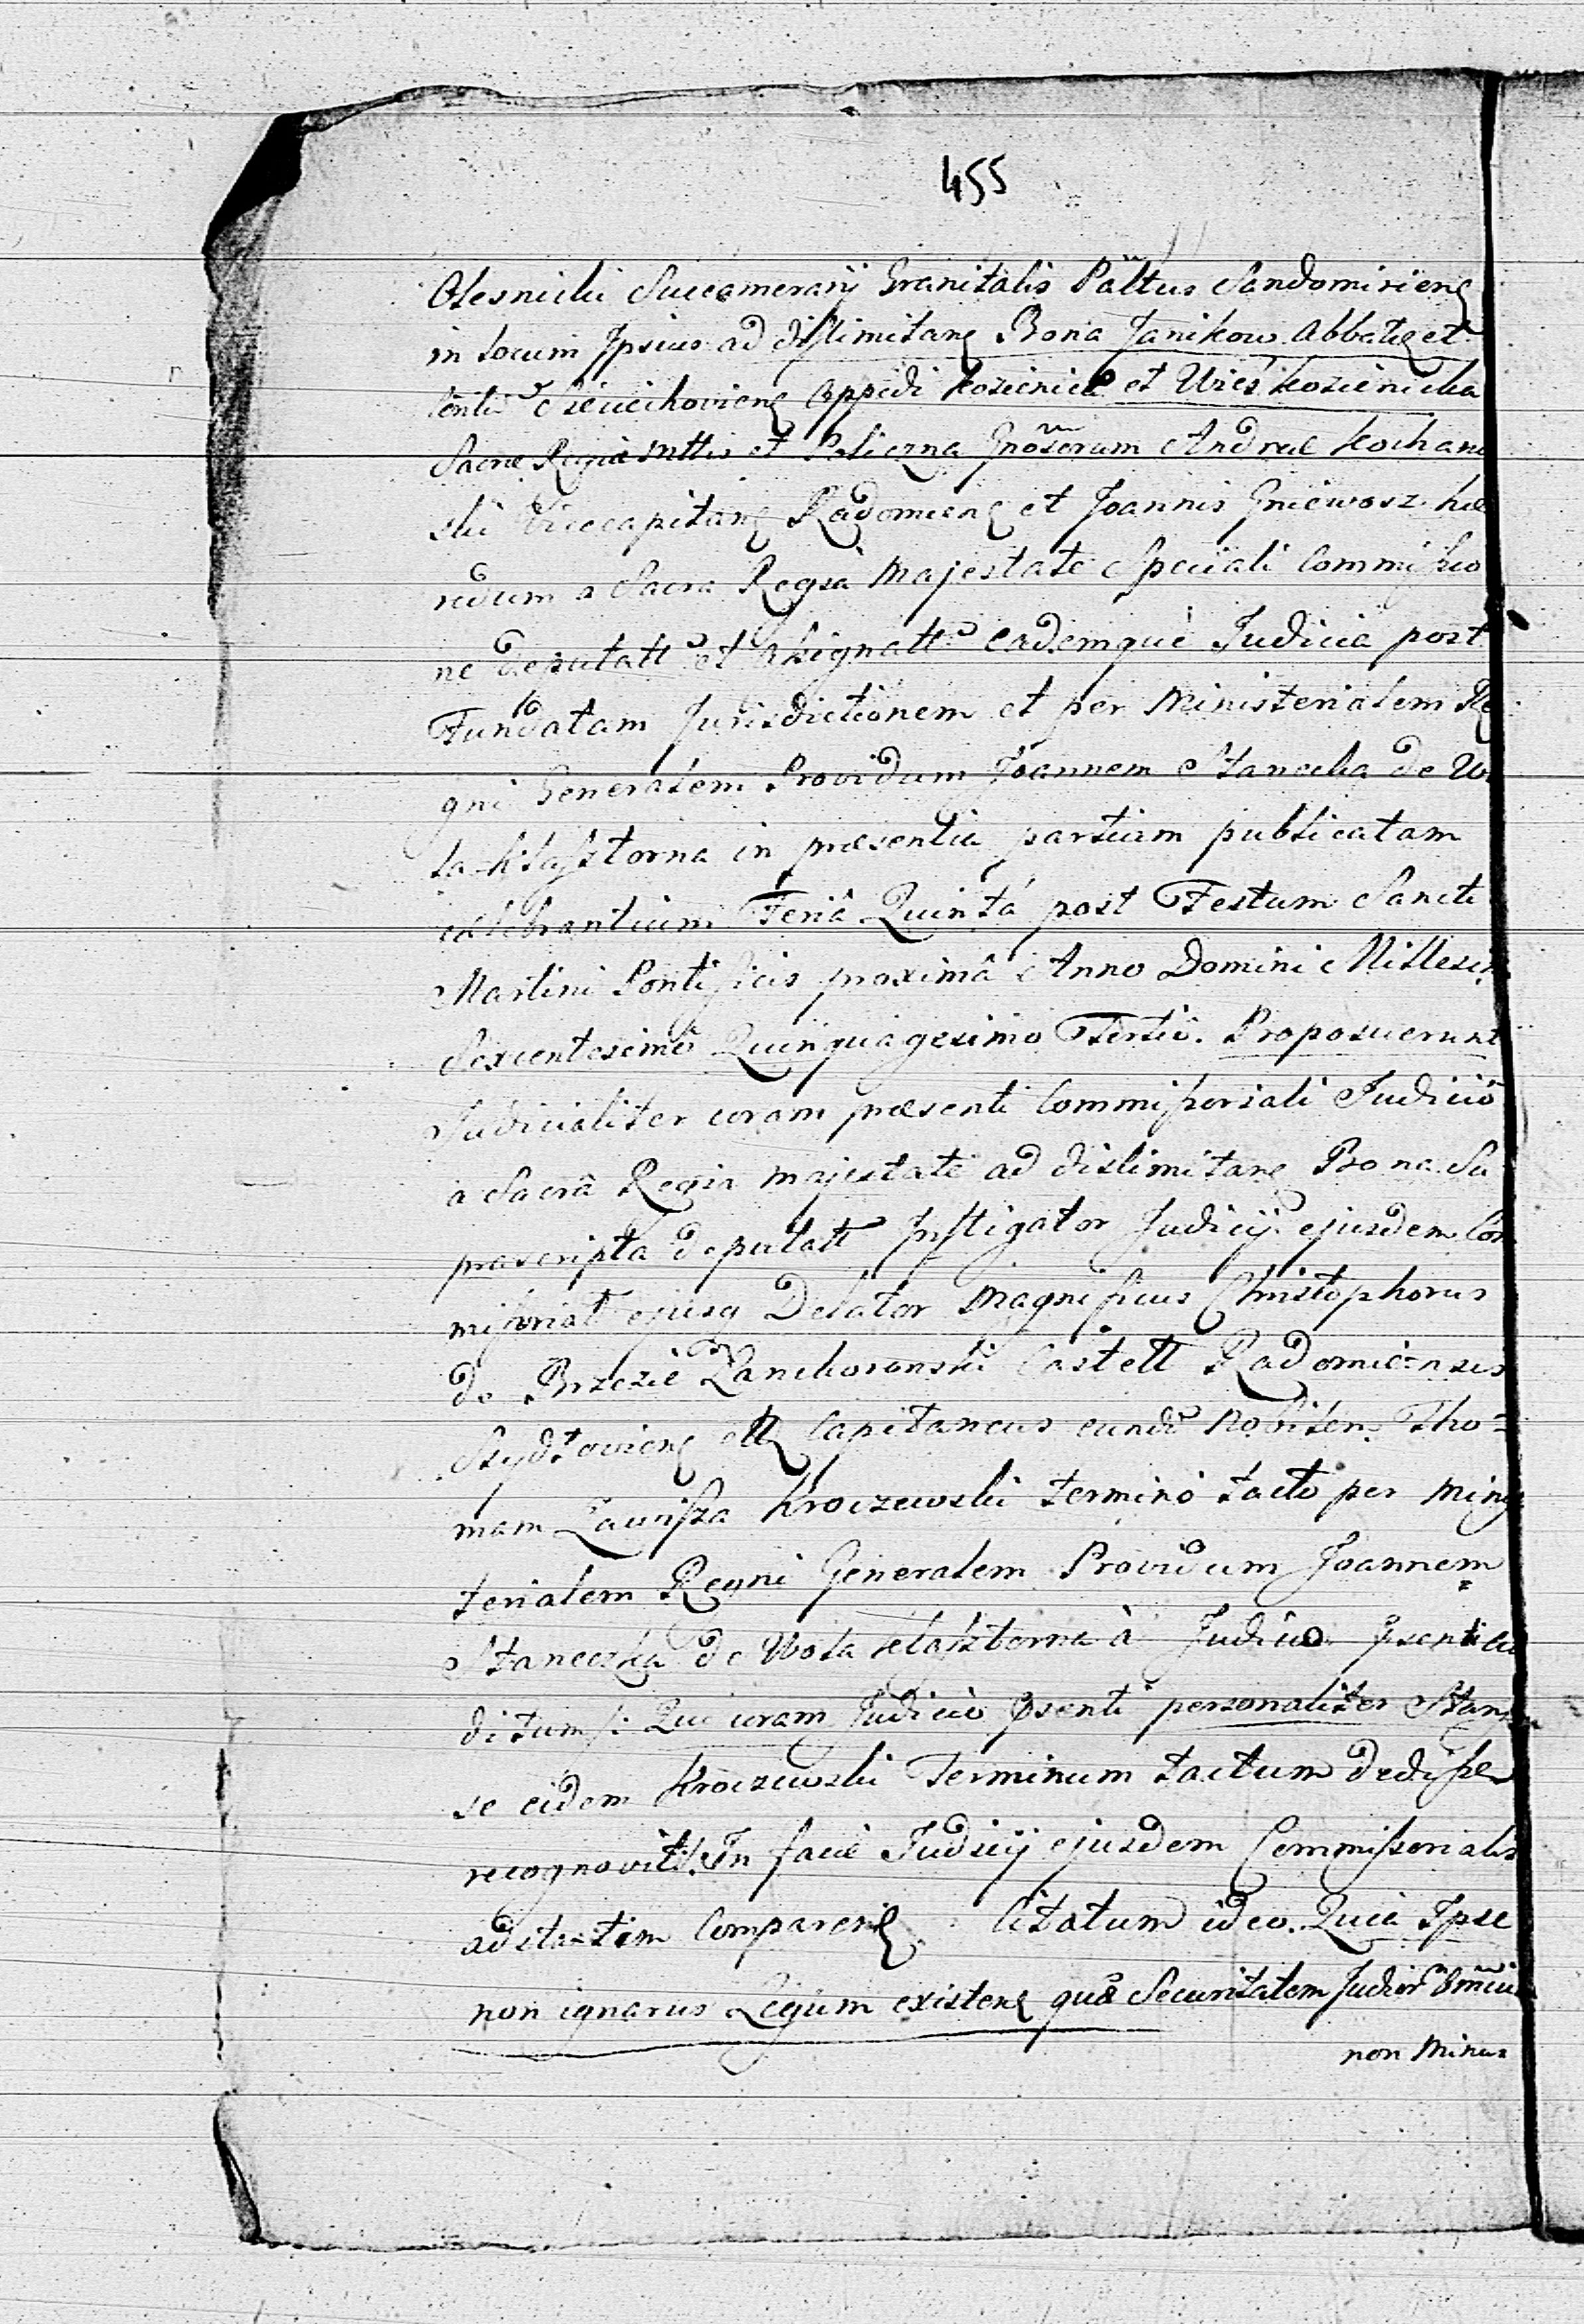 455
Olesnicki Succamerarij Granitalis Palttus Sandomirieng
in locum Ipsius ad dislimitang Bona Janikow Abbatię et
Centūs Sieciechovieng Oppidi Kozienice et Wies Kozienicka
Sacræ Regiæ Mttis et Policzna Gnosorum Andreæ Kochano
ski Vicecapitang Radomieng et Joannis Gniewosz hæ
redum a Sacra Regia Majestate Speciali Commissio
ne Deputatt et Assignatt eademque Judicia post
Fundatam Jurisdictionem et per Ministerialem Re
gni Generalem Providum Joannem Stanecka de Wo
la Klasztorna in præsentia partium publicatam
celebrantium Feriâ Quintá post Festum Sancti
Martini Pontificis proximâ Anno Domini Millesim
Sexcentesimo Quinquagesimo Tertio. Proposuerunt
Judicialiter coram præsenti Commissoriali Judicio
a Sacrâ Regia Majestate ad dislimitang Bona Su
prascripta deputatt Instigator Judicij ejusdem Com
missoriat ejusq Delator Magnificus Christophorus
de Brzezie Lanckoronski Castell Radomiensis
Stydłovieng ett Capitaneus eund Nobilem Tho=
mam Zawisza Kroczewski termino tacto per Minis
terialem Regni Generalem Providum Joannem
Staneczka de Wola Klasztorna à Judicio psenti ed
ditum s: Qui coram Judicio psenti personaliter Stang
se eidem Kroczewski Terminum tactum dedisse
recognovit. In facie Judicij ejusdem Commissorialis
adstantem Compareng Citatum ideo. Quia Ipse
non ignarus Legum existeng quæ Securitatem Judior omniu
non Minus